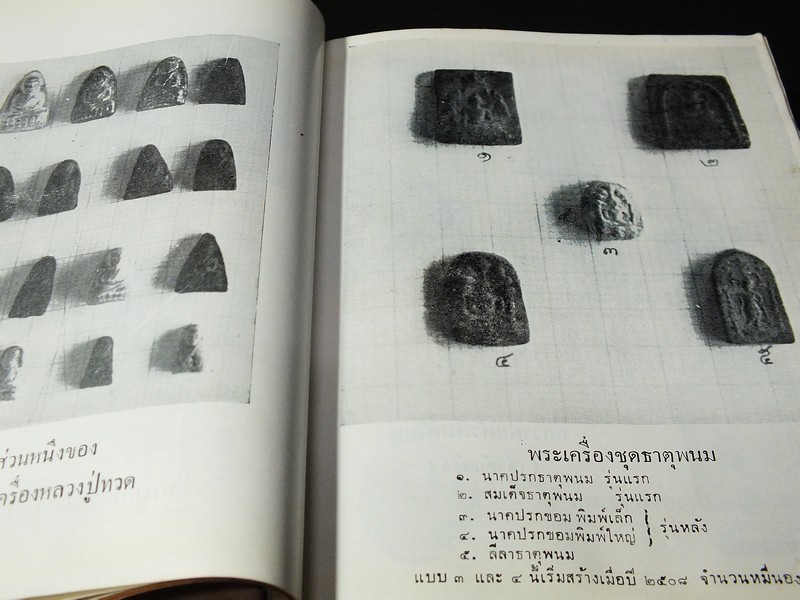 ส่วนหนึ่งของ
ครื่องหลวงปู่ทวด
๑
๒
๓
๔
๕
พระเครื่องชุดธาตุพนม
๑. นาคปรกธาตุพนม รุ่นแรก
๒. สมเด็จธาตุพนม รุ่นแรก
๓. นาคปรกขอม พิมพ์เล็ก
๔. นาคปรกขอมพิมพ์ใหญ่ } รุ่นหลัง
๕. ลีลาธาตุพนม
แบบ ๓ และ ๔ นี้เริ่มสร้างเมื่อปี ๒๕๐๘ จำนวนหมื่นอง